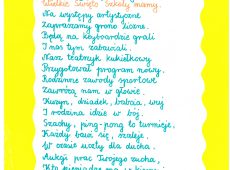 Wielkie Święto Szkoły mamy.
Na występy artystyczne
Zapraszamy grono liczne.
Będą na keyboardzie grali
I nas tym zabawiali.
Nasz teatrzyk kukiełkowy
Przygotował program nowy.
Rodzinne zawody sportowe
Zawrócą nam w głowie.
Kuzyn, dziadek, babcia, wuj
I rodzina idzie w bój.
Szachy, ping-pong to turnieje.
Każdy bawi się, szaleje,
W czasie uczty dla ducha,
Aukcji prac Twojego zucha,
Kto pieniądze ma w